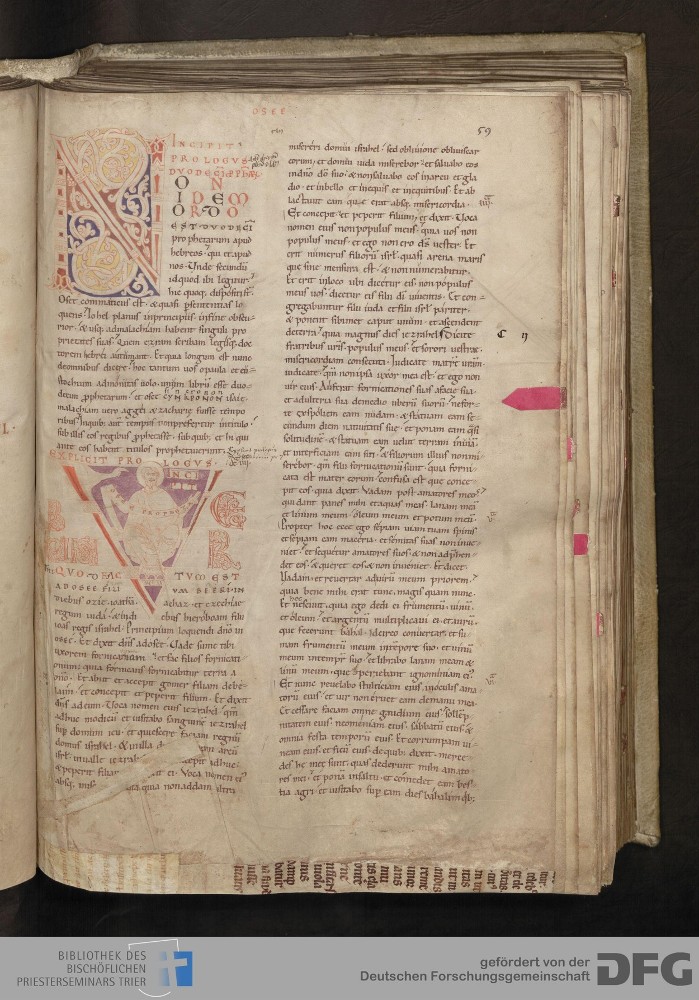 OSEE
59
INCIPIT
PROLOGVS
DVODECĪ PPHAꝜ
NON
IDEM
ORDO
EST DVODECĪ
prophetarum apud
hebreos · qui et apud
nos · Vnde secundū
id quod ibi legitur ·
hic quoq; dispositi sī ·
Osee commaticus est · & quasi p sententias lo
quens · Iohel planus in principiis · in fine obscu
rior · & usq; ad malachiam habent singuli pro
prietates suas · Quem ezram scribam legisq; doc
torem hebrei autumant · Et quia longum est nunc
de omnibus dicere · hoc tantum uos o paula et eu
stochium admonitas uolo · unum librū esse duo
decim pphetarum · et osee CYNXPONON isaie ·
malachiam uero aggei & zacharie fuisse tempo
ribus · In quib; autē tempus non prefertur in titulo ·
sub illis eos regibus pphetasse · sub quib; et hi qui
ante eos habent titulos prophetauerunt ·
EXPLICIT PROLOGVS ·
INCI
VERBVM
QVOD FAC TVM EST
AD OSEE FILI VM BEERI · IN
diebus ozie · ioatha · achaz · et ezechiae
regum iuda · & in diebus hieroboam filii
ioas regis israhel · Principium loquendi dn̄o in
osee · Et dixit dn̄s ad osee · Vade sume tibi
uxorem fornicariam · et fac filios fornicati
onum · quia fornicans fornicabitur terra a
dn̄o · Et abiit et accepit gomer filiam debe
laim · et concepit et peperit filium · Et dixit
dn̄s ad eum · Voca nomen eius iezrahel · qm̄
adhuc modicū et uisitabo sanguinē iezrahel
sup domum ieu · et quiescere faciam regnū
domus israhel · & in illa d
isrl̄ in ualle iezrah
& peperit filiam
absq; mis quia non addam ultra
misereri domui israhel · sed obliuione obliuiscar
eorum · et domui iuda miserebor · et saluabo eos
in dn̄o dō suo · & non saluabo eos in arcu et gla
dio · et in bello et in equis et in equitibus · Et ab
lactauit eam que erat absq; misericordia ·
Et concepit et peperit filium · et dixit · Voca
nomen eius non populus meus · quia uos non
populus meus · et ego non ero d̄s uester · Et
erit numerus filiorū isrl̄ quasi arena maris
que sine mensura est · & non numerabitur ·
Et erit in loco ubi dicetur eis non populus
meus uos · dicetur eis filii dī uiuentis · Et con
gregabuntur filii iuda et filii isrl̄ pariter ·
& ponent sibimet caput unum · et ascendent
de terra · quia magnus dies iezrahel · Dicite
fratribus uris populus meus · et sorori uestrae
misericordiam consecuta · Iudicate matrē urām
iudicate · qm̄ non ipsa uxor mea est · et ego non
uir eius · Auferat fornicationes suas a facie sua ·
et adulteria sua de medio uberū suorū · ne for
te expoliem eam nudam · & statuam eam se
cundum diem natiuitatis sue · et ponam eam q̄si
solitudinē · & statuam eam uelut terram inuiā ·
et interficiam eam siti · & filiorum illius non mi
serebor · qm̄ filii fornicationū sunt · quia forni
cata est mater eorum · confusa est que conce
pit eos · quia dixit · Vadam post amatores meos
qui dant panes mihi et aquas meas · lanam meā
et linum meum · oleum meum et potum meū ·
Propter hoc ecce ego sepiam uiam tuam spinis
et sepiam eam maceria · et semitas suas non inue
niet · et sequetur amatores suos · & non adp̄hen
det eos · & queret eos · & non inueniet · Et dicet ·
Vadam · et reuertar ad uirū meum priorem ·
quia bene mihi erat tunc magis quam nunc ·
Et hec nesciuit · quia ego dedi ei frumentū · uinū
et oleum · et argentū multiplicaui ei · et aurū ·
que fecerunt bahal · Idcirco conuertar · et su
mam frumentū meum in tempore suo · et uinū
meum in tempr suo · et liberabo lanam meam &
linū meum · que operiebant ignominiam ei ·
Et nunc reuelabo stulticiam eius in oculis ama
torū eius · et uir non eruet eam de manu mea ·
Et cessare faciam omne gaudium eius · sollēp
nitatem eius · neomeniam eius · sabbatū eius &
omnia festa temporū eius · Et corrumpam ui
neam eius · et ficū eius · de quib; dixit · merce
des hę meę sunt · quas dederunt mihi amato
res mei · et ponā in saltū · et comedet eam bes
tia agri · et uisitabo sup eam dies bahalim q̄b;
BIBLIOTHEK DES
BISCHÖFLICHEN
PRIESTERSEMINARS TRIER
gefördert von der
Deutschen Forschungsgemeinschaft
DFG